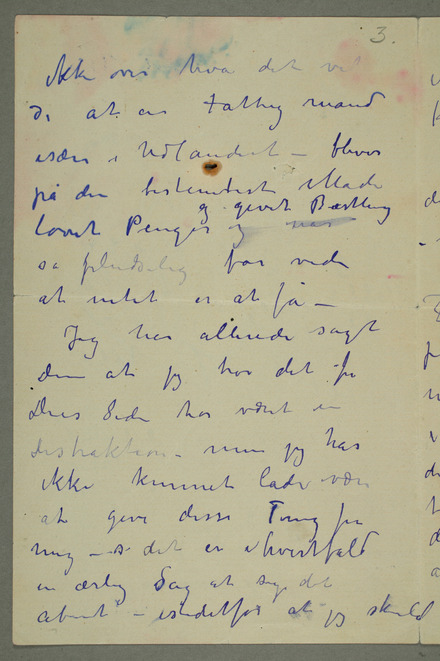 3.
ikke over hva det vil
si at en fattig mand
især i Udlandet – bliver
på den bestemteste Måde
lovet Penger og
og givet Bestilling
så pludselig får vide
at intet er at få –
Jeg har allerede sagt
Dem at jeg tror det fra
Deres Side har været en
distraktion – men jeg har
ikke kunnet lade være
at give disse Ting fra
mig – så det er ihvertfald
en ærlig Sag at sige det
åbent – istedetfor at jeg skuld